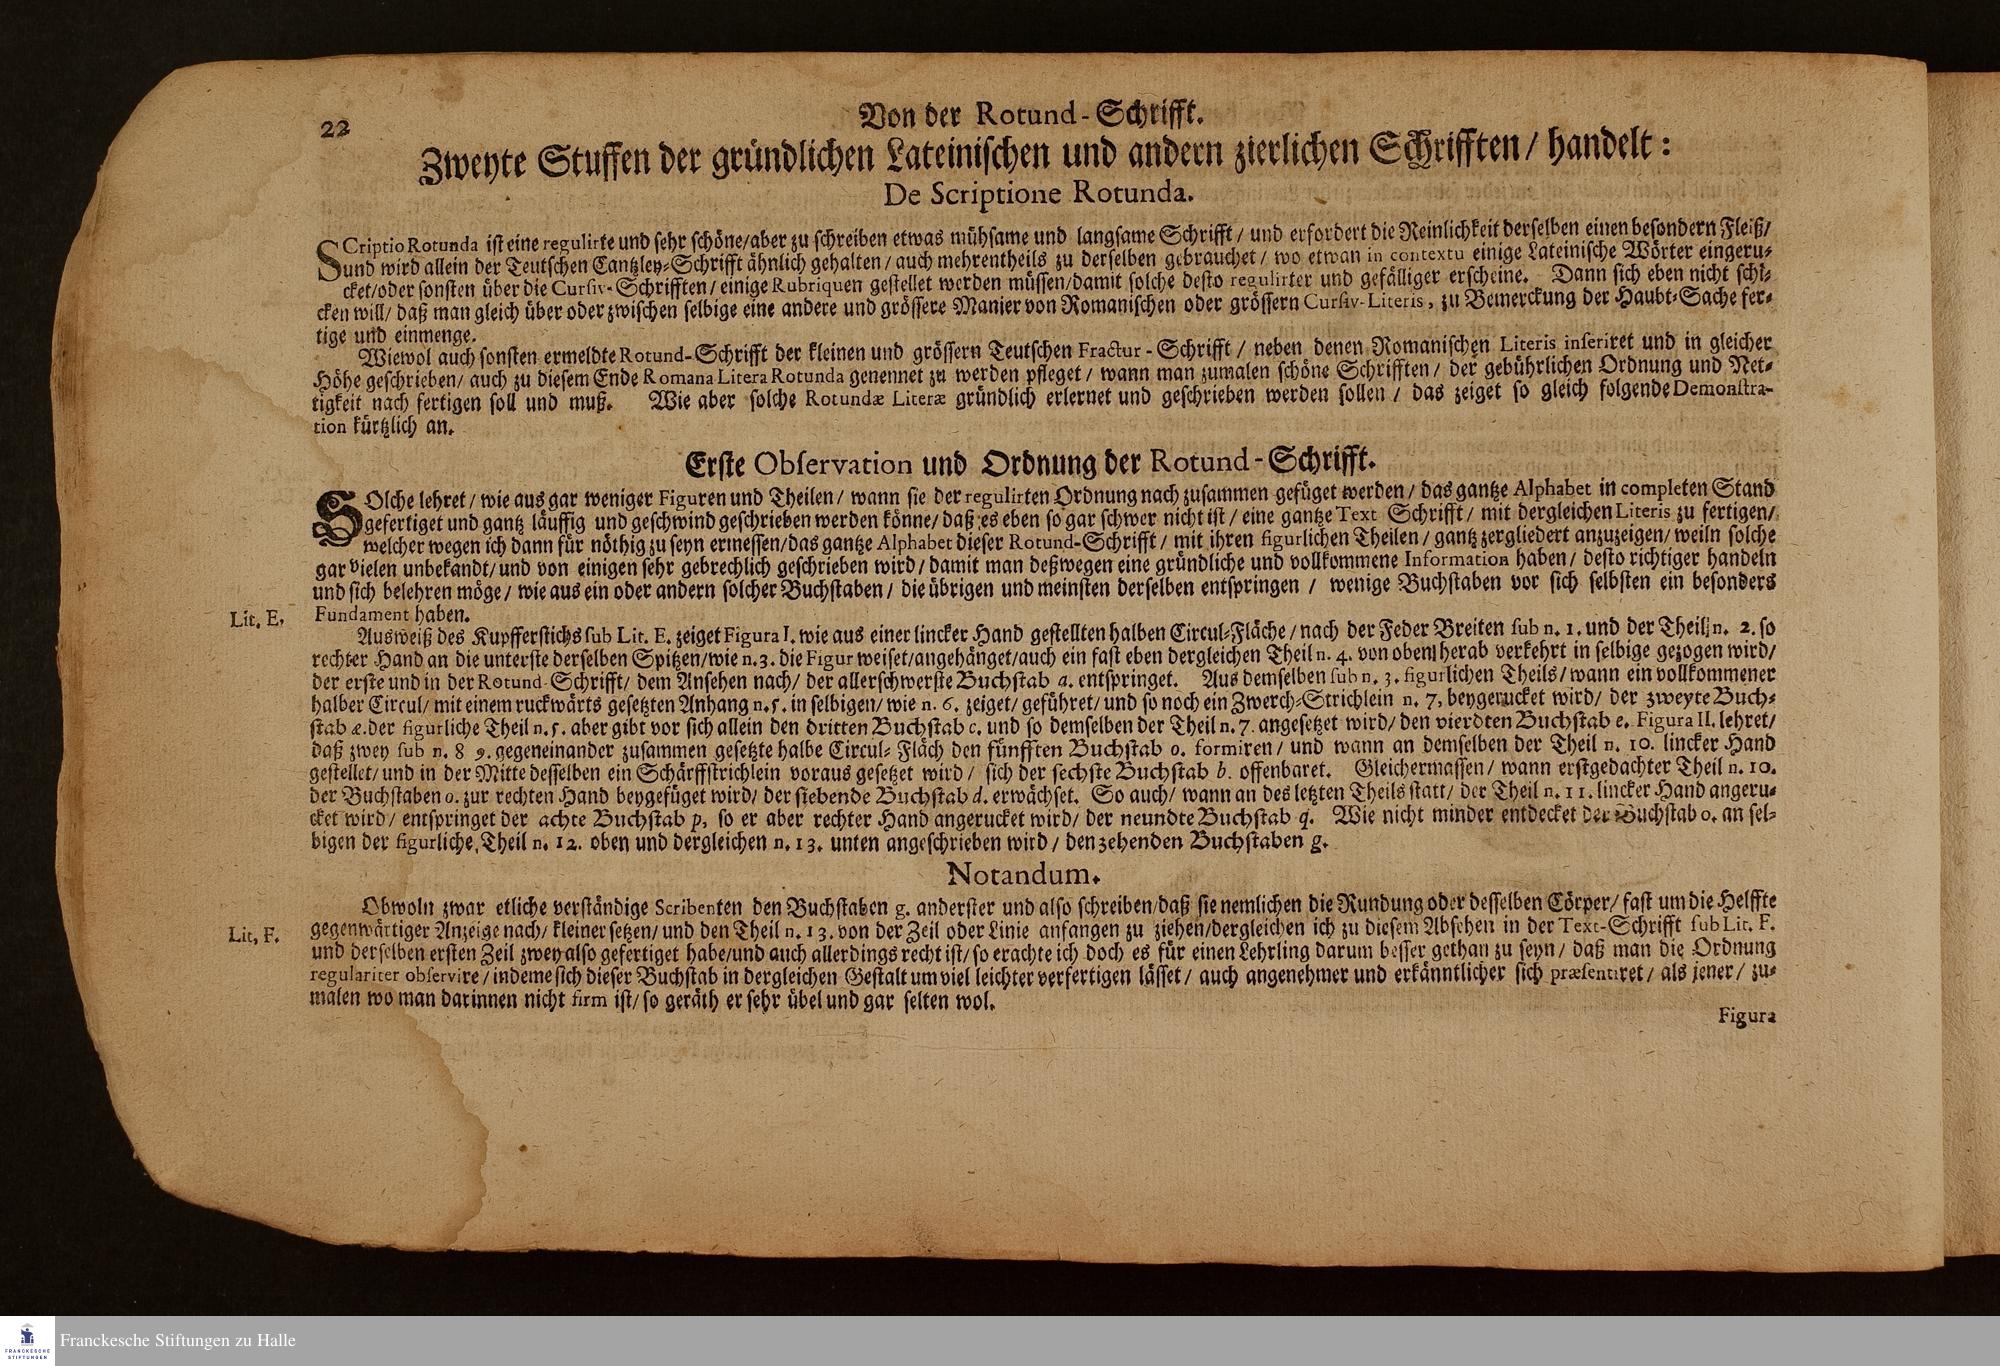 22
Von der Rotund-Schrifft.
Zweyte Stuffen der gründlichen Lateinischen und andern zierlichen Schrifften/ handelt:
De Scriptione Rotunda.
SCriptio Rotunda ist eine regulirte und sehr schöne/aber zu schreiben etwas mühsame und langsame Schrifft/ und erfordert die Reinlichkeit derselben einen besondern Fleiß/
und wird allein der Teutschen Cantzley-Schrifft ähnlich gehalten/ auch mehrentheils zu derselben gebrauchet/ wo etwan in contextu einige Lateinische Wörter eingeru-
cket/oder sonsten über die Cursiv-Schrifften/ einige Rubriquen gestellet werden müssen/damit solche desto regulirter und gefälliger erscheine. Dann sich eben nicht schi-
cken will/ daß man gleich über oder zwischen selbige eine andere und grössere Manier von Romanischen oder grössern Cursiv-Literis, zu Bemerckung der Haubt-Sache fer-
tige und einmenge.
Wiewol auch sonsten ermeldte Rotund-Schrifft der kleinen und grössern Teutschen Fractur-Schrifft/ neben denen Romanischen Literis inseriret und in gleicher
Höhe geschrieben/ auch zu diesem Ende Romana Litera Rotunda genennet zu werden pfleget/ wann man zumalen schöne Schrifften/ der gebührlichen Ordnung und Net-
tigkeit nach fertigen soll und muß. Wie aber solche Rotundæ Literæ gründlich erlernet und geschrieben werden sollen/ das zeiget so gleich folgende Demonstra-
tion kürtzlich an.
Erste Observation und Ordnung der Rotund-Schrifft.
SOlche lehret/ wie aus gar weniger Figuren und Theilen/ wann sie der regulirten Ordnung nach zusammen gefüget werden/ das gantze Alphabet in completen Stand
gefertiget und gantz läuffig und geschwind geschrieben werden könne/ daß es eben so gar schwer nicht ist/ eine gantze Text Schrifft/ mit dergleichen Literis zu fertigen/
welcher wegen ich dann für nöthig zu seyn ermessen/das gantze Alphabet dieser Rotund-Schrifft/ mit ihren figurlichen Theilen/ gantz zergliedert anzuzeigen/ weiln solche
gar vielen unbekandt/ und von einigen sehr gebrechlich geschrieben wird/ damit man deßwegen eine gründliche und vollkommene Information haben/ desto richtiger handeln
und sich belehren möge/ wie aus ein oder andern solcher Buchstaben/ die übrigen und meinsten derselben entspringen/ wenige Buchstaben vor sich selbsten ein besonders
Lit. E. Fundament haben.
Ausweiß des Kupfferstichs sub Lit. E. zeiget Figura I. wie aus einer lincker Hand gestellten halben Circul-Fläche/ nach der Feder Breiten sub n. 1. und der Theil n. 2. so
rechter Hand an die unterste derselben Spitzen/wie n. 3. die Figur weiset/angehänget/auch ein fast eben dergleichen Theil n. 4. von oben herab verkehrt in selbige gezogen wird/
der erste und in der Rotund-Schrifft/ dem Ansehen nach/ der allerschwerste Buchstab a. entspringet. Aus demselben sub n. 3. figurlichen Theils/ wann ein vollkommener
halber Circul/ mit einem ruckwärts gesetzten Anhang n. 5. in selbigen/ wie n. 6. zeiget/ geführet/ und so noch ein Zwerch-Strichlein n. 7, beygerucket wird/ der zweyte Buch-
stab æ. der figurliche Theil n. 5. aber gibt vor sich allein den dritten Buchstab c. und so demselben der Theil n. 7. angesetzet wird/ den vierdten Buchstab e. Figura II. lehret/
daß zwey sub n. 8 9. gegeneinander zusammen gesetzte halbe Circul-Fläch den fünfften Buchstab o. formiren/ und wann an demselben der Theil n. 10. lincker Hand
gestellet/ und in der Mitte desselben ein Schärffstrichlein voraus gesetzet wird/ sich der sechste Buchstab b. offenbaret. Gleichermassen/ wann erstgedachter Theil n. 10.
der Buchstaben o. zur rechten Hand beygefüget wird/ der siebende Buchstab d. erwächset. So auch/ wann an des letzten Theils statt/ der Theil n. 11. lincker Hand angeru-
cket wird/ entspringet der achte Buchstab p, so er aber rechter Hand angerucket wird/ der neundte Buchstab q. Wie nicht minder entdecket der Buchstab o. an sel-
bigen der figurliche Theil n. 12. oben und dergleichen n. 13. unten angeschrieben wird/ den zehenden Buchstaben g.
Notandum.
Obwoln zwar etliche verständige Scribenten den Buchstaben g. anderster und also schreiben/daß sie nemlichen die Rundung oder desselben Cörper/ fast um die Helffte
Lit. F. gegenwärtiger Anzeige nach/ kleiner setzen/ und den Theil n. 13. von der Zeil oder Linie anfangen zu ziehen/dergleichen ich zu diesem Absehen in der Text-Schrifft sub Lit. F.
und derselben ersten Zeil zwey also gefertiget habe/und auch allerdings recht ist/ so erachte ich doch es für einen Lehrling darum besser gethan zu seyn/ daß man die Ordnung
regulariter observire/ indeme sich dieser Buchstab in dergleichen Gestalt um viel leichter verfertigen lässet/ auch angenehmer und erkänntlicher sich præsentiret/ als jener/ zu-
malen wo man darinnen nicht firm ist/ so geräth er sehr übel und gar selten wol.
Figura
FRANCKESCHE
STIFTUNGEN
Franckesche Stiftungen zu Halle